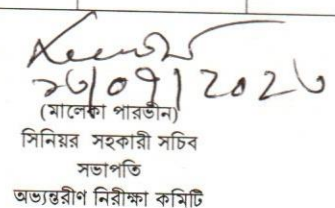 ২৩/০৭/২০২৩
(মালেকা পারভীন)
সিনিয়র সহকারী সচিব
সভাপতি
অভ্যন্তরীণ নিরীক্ষা কমিটি